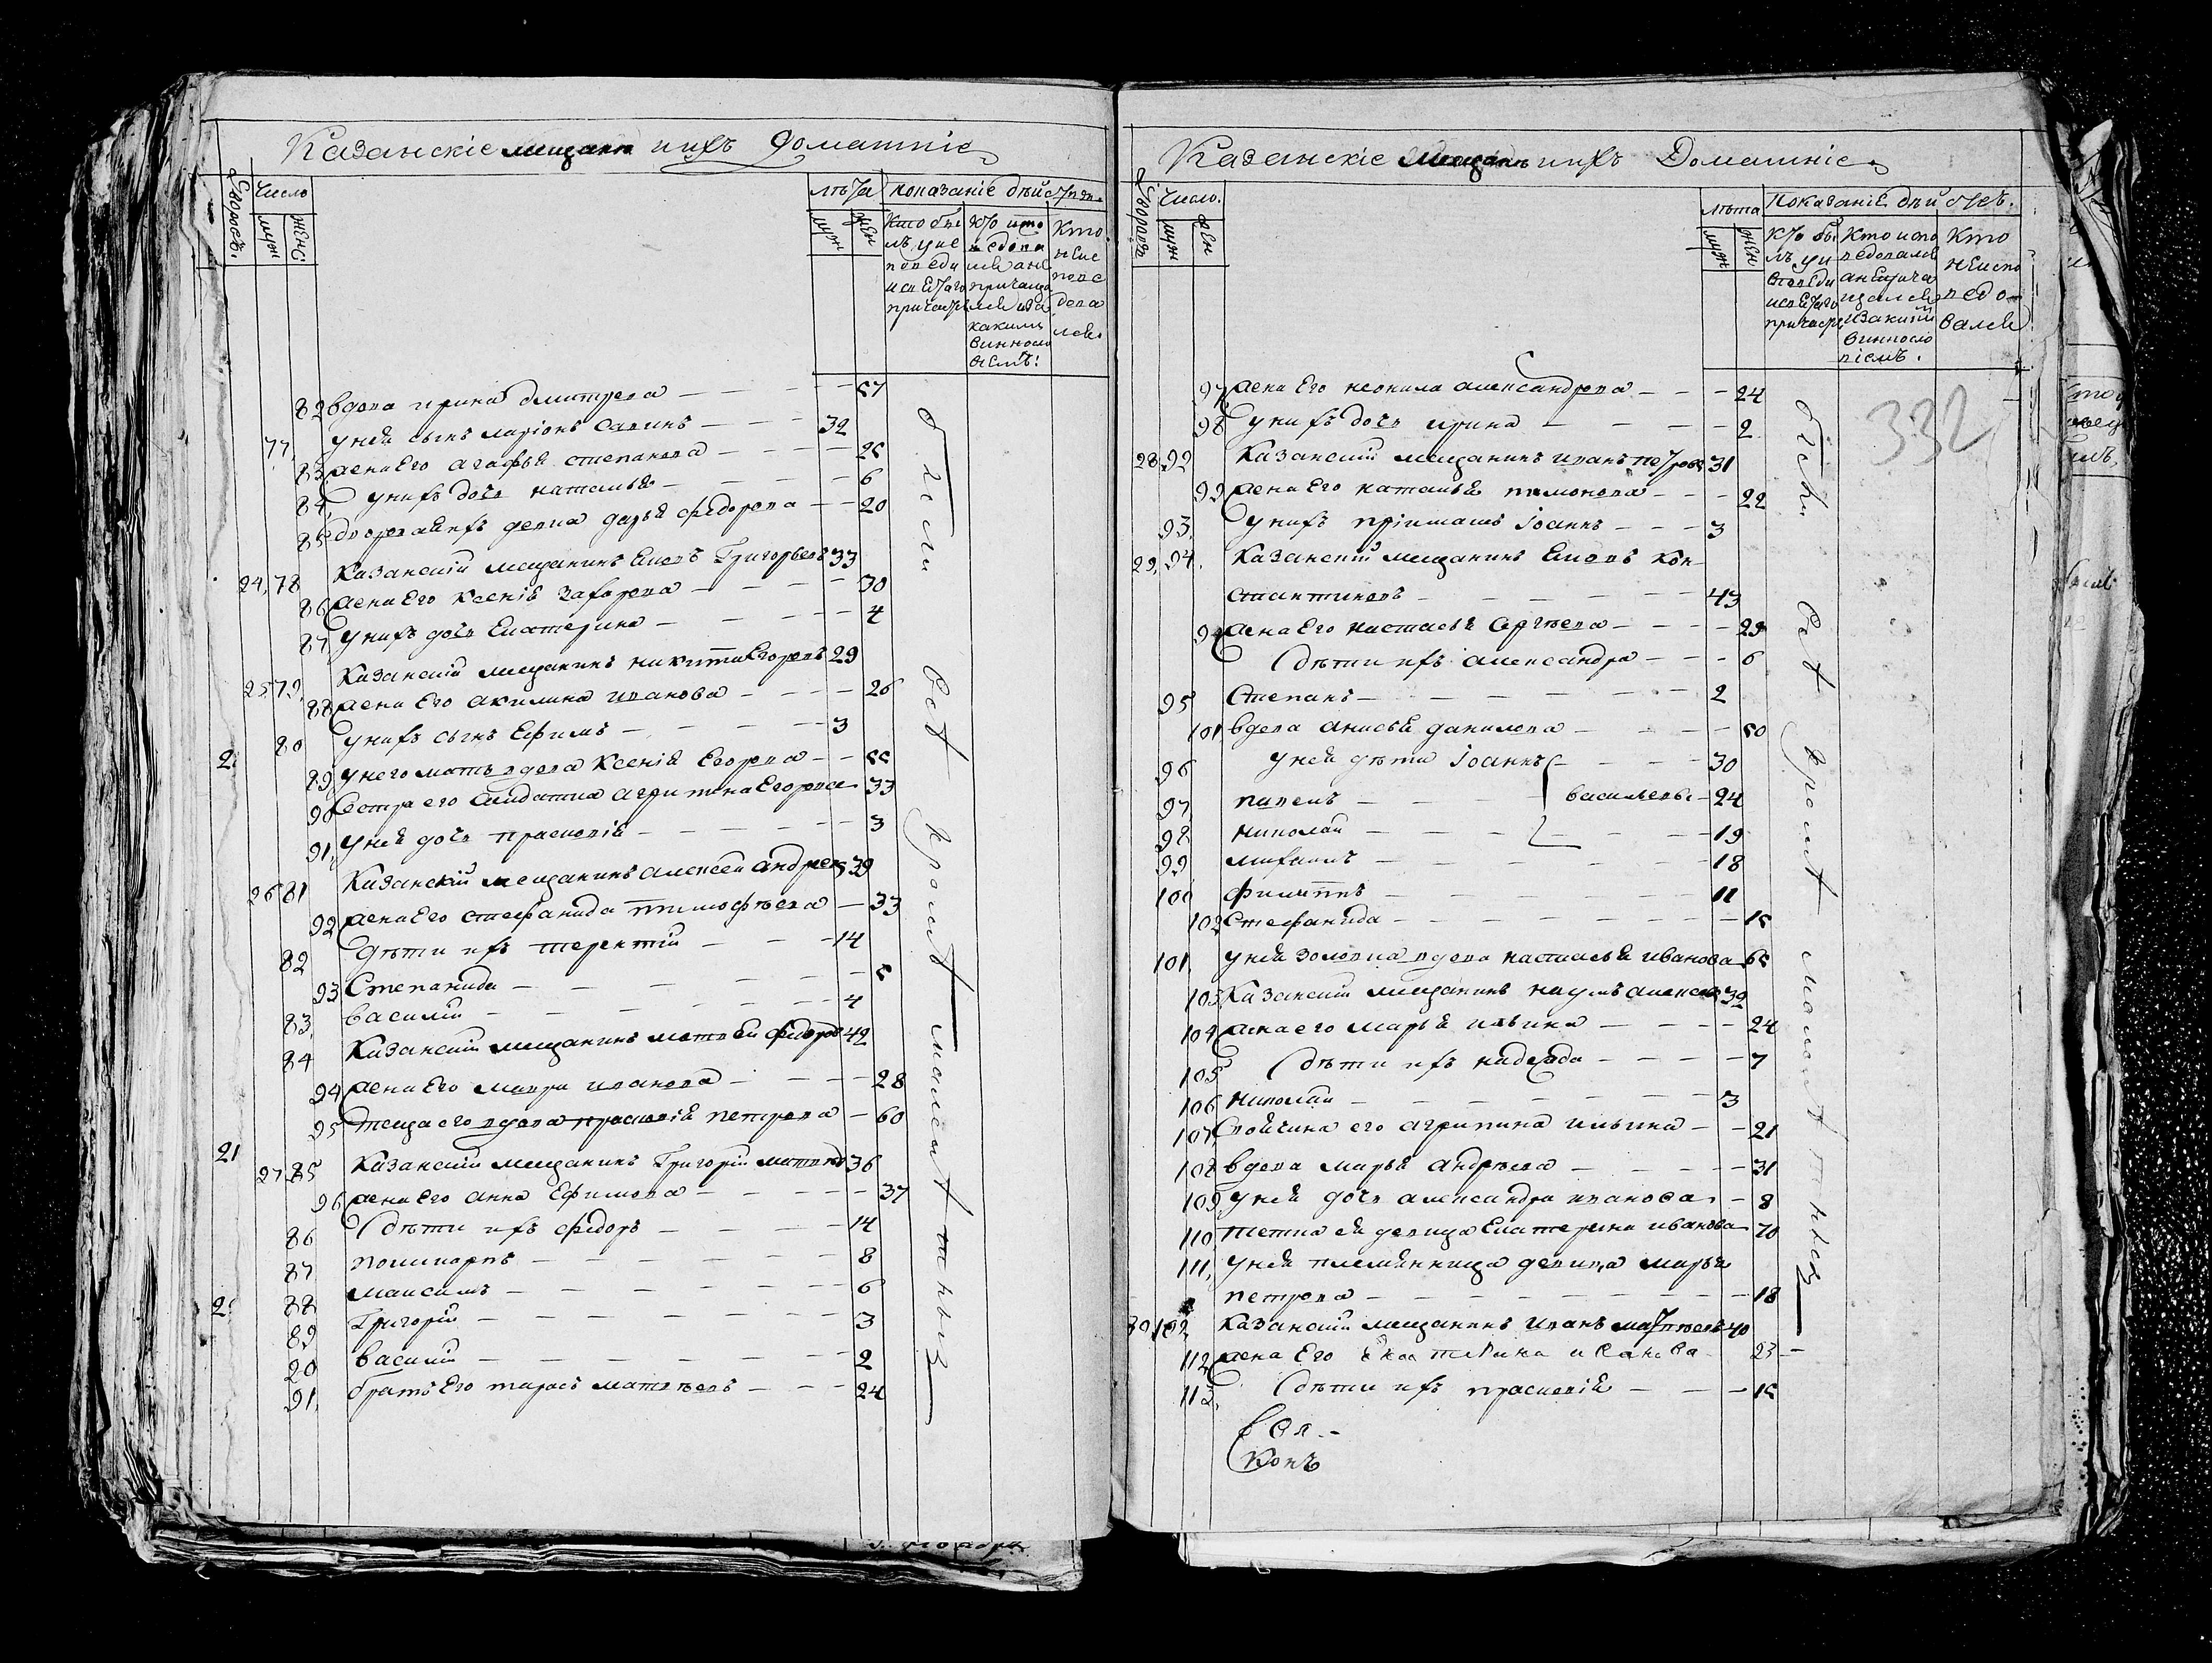 Казанскіе мещане и ихъ домашніе
Число
лѣта
показаніе дѣйств.
№ дворовъ.
муж
женс:
муж
жен
Кто былъ у исповеди и святаго причастія
Кто исповедовался а не причащался и за какимъ винословіемъ:
Кто не исповедовался.
82 вдова ирина дмитрева — — — 57
77, у ней сынъ ларіонъ савинъ — — — 32
83 жена Его агафья степанова — — — 25
84, у нихъ дочь наталья — — — 6
85 дворовая ихъ девка дарья федорова — — 20
24, 78 Казанскій мещанинъ Яковъ Григорьевъ 33
86 жена Его Ксенія Захарова — — — 30
87 у нихъ дочь Екатерина — — — 4
25 79, Казанскій мещанинъ никита Егоровъ 29
88 жена Его акилина иванова — — — 26
80 у нихъ сынъ Ефимъ — — — 3
89 у него мать вдова Ксенія Егорова — — 55
90 Сестра его солдатка агрипина Егорова — 33
91, у ней дочь прасковія — — — 3
26 81 Казанскій мещанинъ алексей андреевъ 39
92 жена Его стефанида тимофѣева — 33
82 дѣти ихъ терентій — — — 14
93 Степанида — — — 5
83, василій — — — 4
84 Казанскій мещанинъ матвей федоровъ 42
94 жена Его мавра иванова — — — 28
95 теща его вдова прасковія петрова — 60
27, 85 Казанскій мещанинъ Григорій матвеевъ 36
96 жена Его анна Ефимова — — — 37
86 дѣти ихъ федоръ — — — 14
87 поликарпъ — — — 8
88 максимъ — — — 6
89 Григорій — — — 3
20 василій — — — 2
91, братъ Его тарасъ матвѣевъ — — — 24
были всѣ кромѣ малолѣтныхъ
Казанскіе мещане и ихъ Домашніе
№ дворовъ
Число.
муж
жен
лѣта
муж
жен
Показаніе дѣйствъ.
Кто былъ у исповеди и святаго причастія
Кто исповедовался а не причащался и за какимъ винословіемъ.
Кто не исповедовался
332
97, жена Его неонила александрова — — — 24
98 у нихъ дочь ирина — — — 2
28, 92 Казанскій мещанинъ иванъ петровъ 31
99 жена Его наталья памонова — — — 22
93, у нихъ пріимышъ іоаннъ — — — 3
29, 94, Казанскій мещанинъ Яковъ Кон-
стантиновъ — — — 43
жена Его настасья Сергѣева — — — 29
дѣти ихъ александра — — — 6
95 Степанъ — — — 2
101 вдова анисья данилова — — — 50
96 у ней дѣти іоаннъ — — — 30
97 павелъ — — — васильевы — 24
98 николай — — — 19
99 михаилъ — — — 18
100 филиппъ — — — 11
102 Стефанида — — — 15
101, у ней золовка вдова настасья иванова 65
103 Казанскій мещанинъ наумъ алексеевъ 39
104 жена его марья ильина — — — 24
105 дѣти ихъ надежда — — — 7
106 николай — — — 3
107, свойчина его агрипина ильина — — 21
108 вдова марья андрѣева — — — 31
109 у ней дочь александра иванова — 8
110 тетка ей девица Екатерина иванова 70
111, у ней племянница девица марья
петрова — — — 18
30, 102 Казанскій мещанинъ иванъ матвѣевъ 40
112 жена Его Екатерина иванова 23 —
113, дѣти ихъ прасковія — — — 15
были всѣ кромѣ малолѣтныхъ